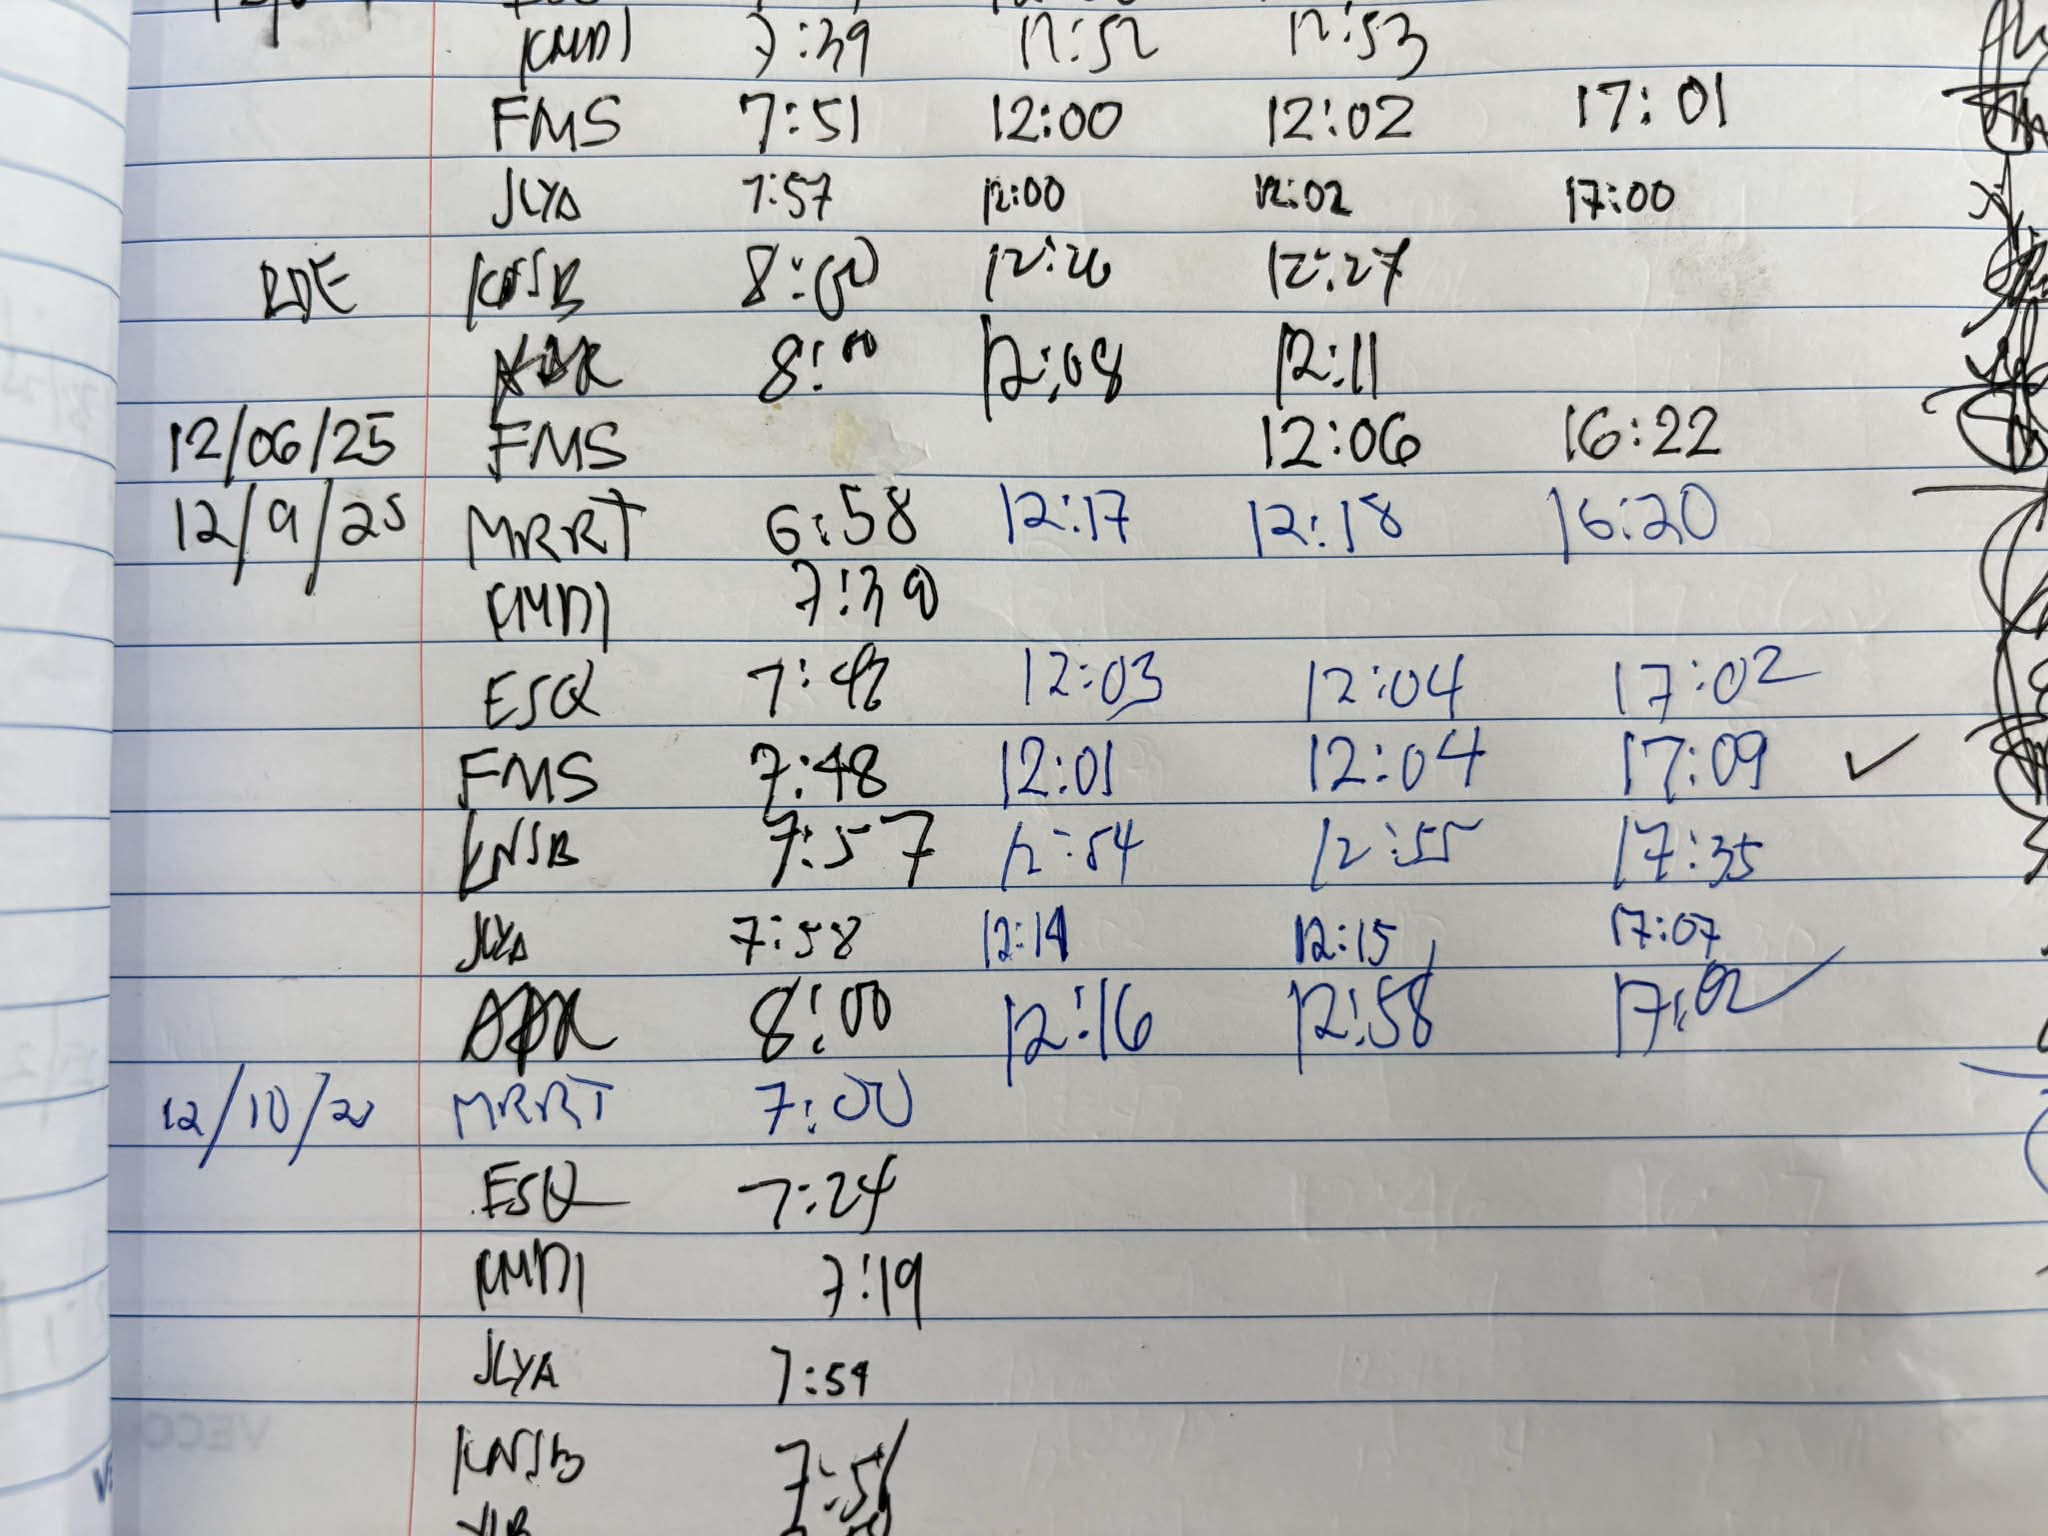 KMDI 7:39 12:52 12:53
FMS 7:51 12:00 12:02 17:01
JLYA 7:57 12:00 12:02 17:00
KNSB 8:00 12:26 12:27
8:00 12:08 12:11
12/06/25 FMS 12:06 16:22
12/9/25 MRRT 6:58 12:17 12:18 16:20
KMDI 7:30
ESQ 7:42 12:03 12:04 17:02
FMS 7:48 12:01 12:04 17:09 ✓
KNSB 7:57 12:54 12:55 17:35
JLYA 7:58 12:14 12:15 17:07
8:00 12:16 12:58 17:02
12/10/25 MRRT 7:00
ESQ 7:24
KMDI 7:19
JLYA 7:59
KNSB